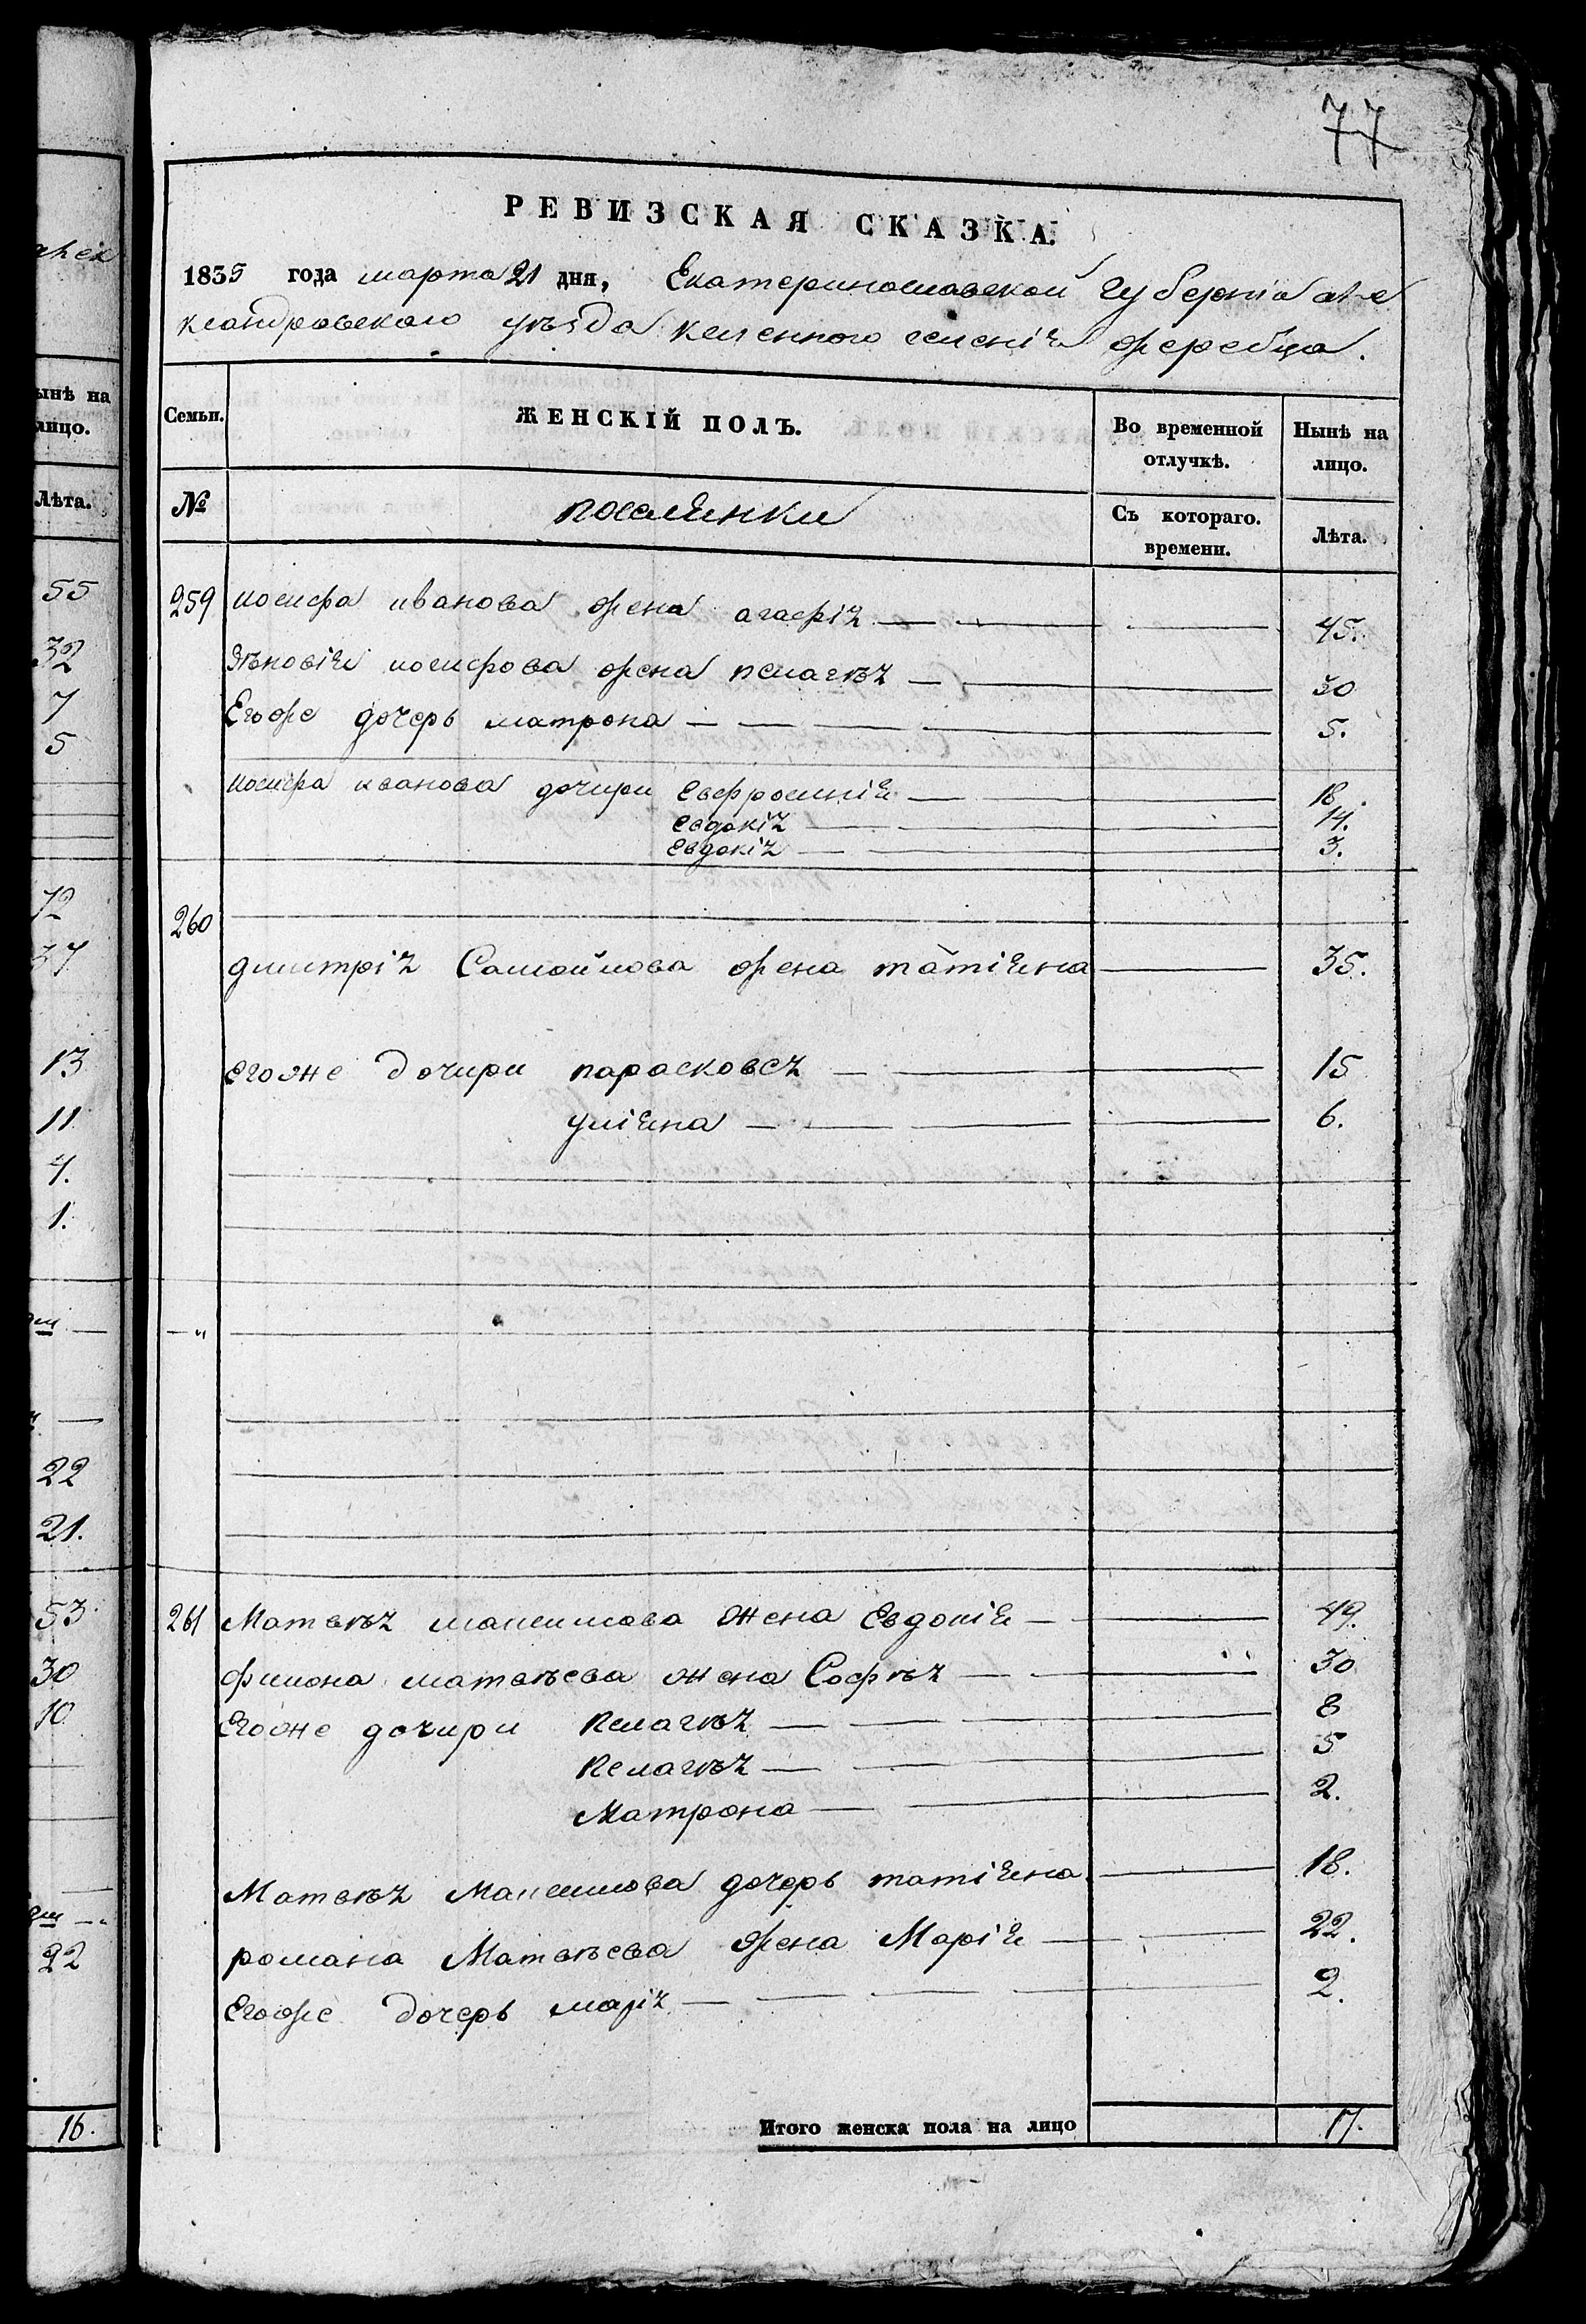 77
РЕВИЗСКАЯ СКАЗКА.
1835 года марта 21 дня, Екатеринославской губерніи але
ксандровского уѣзда казенного селенія жеребца.
Семьи. ЖЕНСКІЙ ПОЛЪ. Во временной отлучкѣ. Нынѣ на лицо.
№ поселянки Съ котораго. времени. Лѣта.
259 иосифа иванова жена агафія 45.
Зѣновія иосифова жена пелагѣя 30
Егоже дочерь матрона 5.
иосифа иванова дочири Евфросинія 18.
евдокія 14.
евдокія 3.
260
дмитрія Самойлова жена татіяна 35.
егоже дочири парасковея 15
уліяна 6.
— „
261 Матвѣя максимова жена Евдокія 49.
филона матвѣева жена Софѣя 30
Егоже дочири пелагѣя 8
пелагѣя 5
Матрона 2.
Матвѣя Максимова дочерь татіяна 18.
романа Матвѣева жена Марія 22.
Егоже дочерь марія 2.
Итого женска пола на лицо 17.
ынѣ на
лицо.
Лѣта.
55
32
7
5
72
37
13
11
4.
1.
22
21.
53
30
10
22
16.